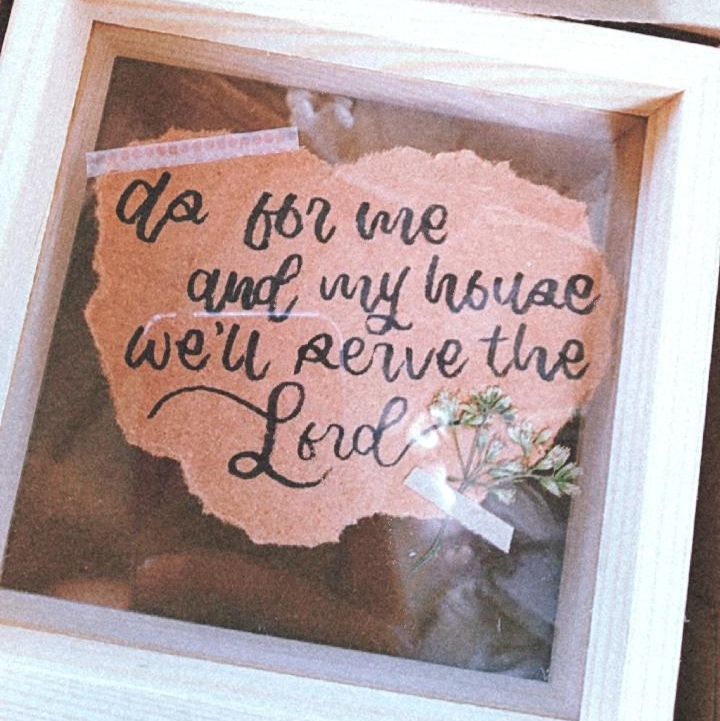 as for me
and my house
we'll serve the
Lord